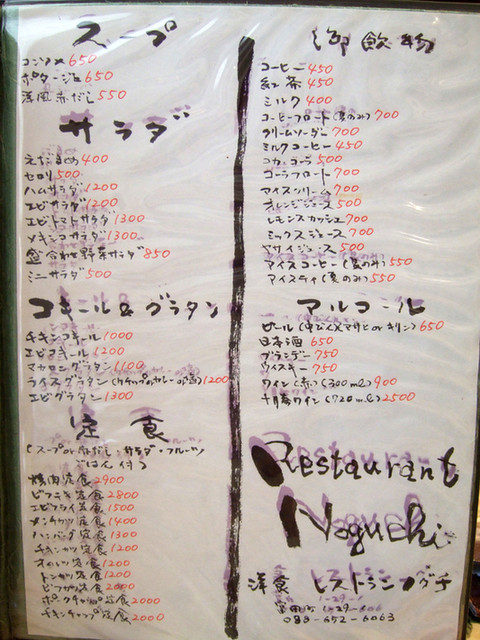 スープ
コンソメ 650
ポタージュ 650
洋風赤だし 550
サラダ
えだまめ 400
セロリ 500
ハムサラダ 1200
エビサラダ 1200
エビトマトサラダ 1300
ツキシコサラダ 1300
盛合わせ野菜サラダ 850
ミニサラダ 500
コキール&グラタン
チキンコキール 1000
エビコキール 1200
マカロニグラタン 1100
ライスグラタン(ケチャップorカレー) 1200
エビグラタン 1300
定食
(スープor赤だし・サラダ・フルーツ
ごはん付)
焼肉定食 2900
ビフテキ定食 2800
エビフライ定食 1500
メンチカツ定食 1400
ハンバーグ定食 1300
チキンカツ定食 1200
オムレツ定食 1200
トンカツ定食 1200
ビフカツ定食 2000
ポークチャップ定食 2000
チキンチャップ定食 2000
御飲物
コーヒー 450
紅茶 450
ミルク 400
コーヒーフロート(夏のみ) 700
クリームソーダ 700
ミルクコーヒー 450
コカコーラ 500
コーラフロート 700
アイスクリーム 700
オレンジジュース 500
レモンスカッシュ 700
ミックスジュース 700
ヤサイジュース 500
アイスコーヒー(夏のみ) 550
アイスティ(夏のみ) 550
アルコール
ビール(中びん×アサヒorキリン) 650
日本酒 650
ブランデー 750
ウイスキー 750
ワイン(赤)(300ml) 900
十勝ワイン(720ml) 2500
Restaurant
Noguchi
洋食 レストランノグチ
1-29-
083-652-6063